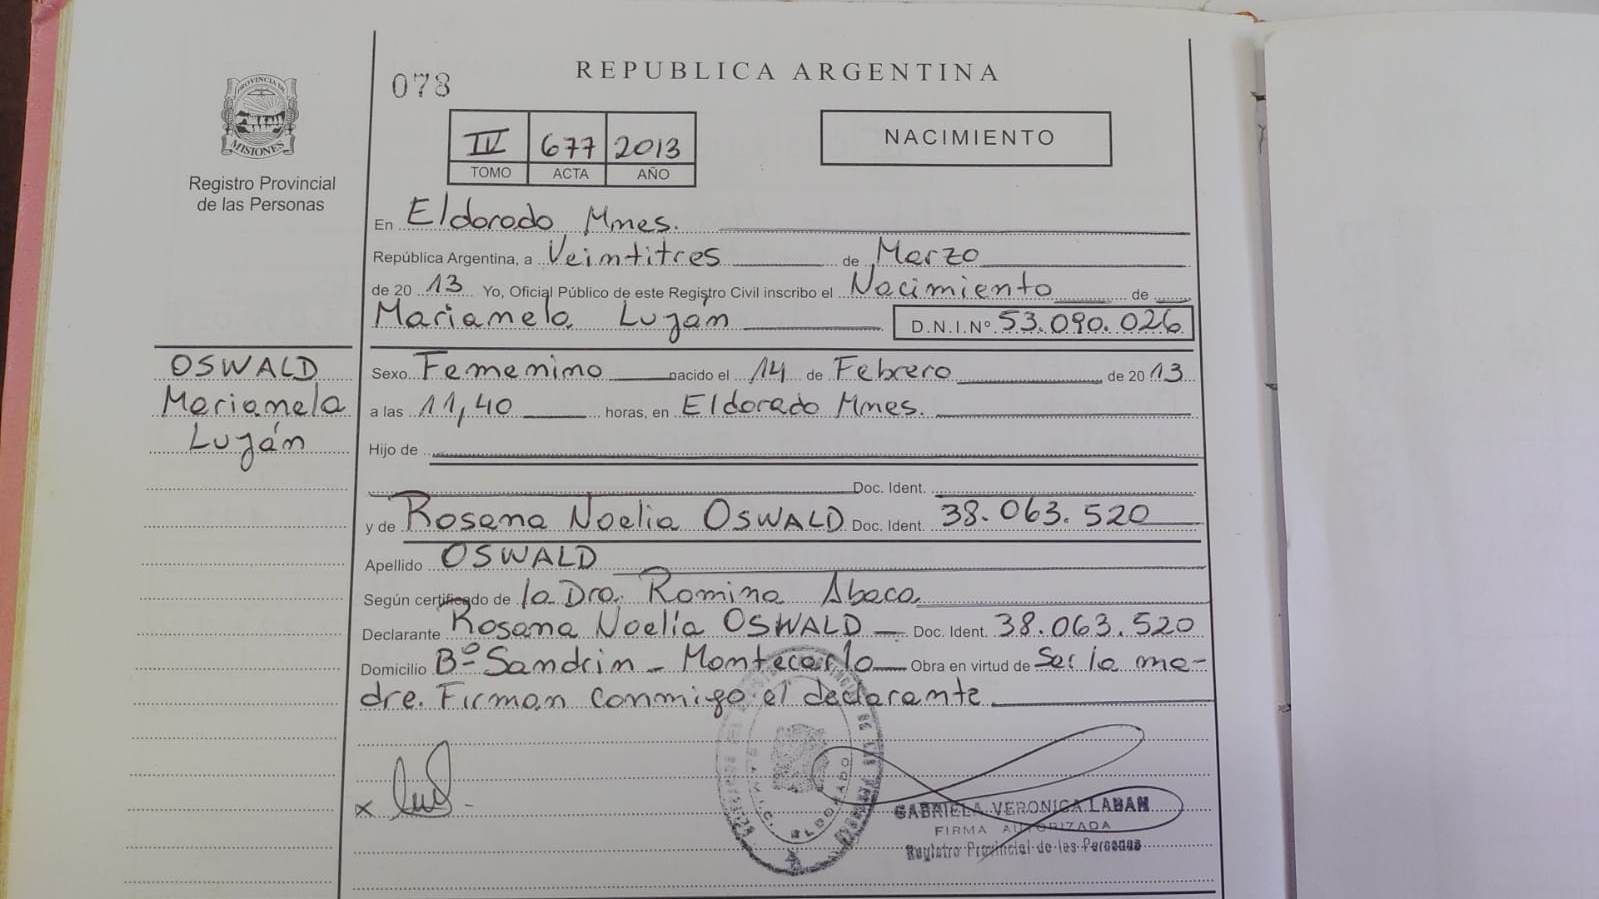 PROVINCIA DE
MISIONES
Registro Provincial
de las Personas
078
REPUBLICA ARGENTINA
IV 677 2013
TOMO ACTA AÑO
NACIMIENTO
En Eldorado Mnes.
República Argentina, a Veintitres de Marzo
de 20 13 Yo, Oficial Público de este Registro Civil inscribo el Nacimiento de
Marianela Luján D.N.I.Nº 53.090.026
OSWALD
Marianela
Luján
Sexo Femenino nacido el 14 de Febrero de 20 13
a las 11,40 horas, en Eldorado Mnes.
Hijo de
Doc. Ident.
y de Rosana Noelia OSWALD Doc. Ident. 38.063.520
Apellido OSWALD
Según certificado de la Dra. Romina Abaca
Declarante Rosana Noelia OSWALD Doc. Ident. 38.063.520
Domicilio Bº Sandrin - Montecarlo Obra en virtud de Ser la ma-
dre. Firman conmigo el declarante
x
ELDORADO
GABRIELA VERONICA LABAN
FIRMA AUTORIZADA
Registro Provincial de las Personas